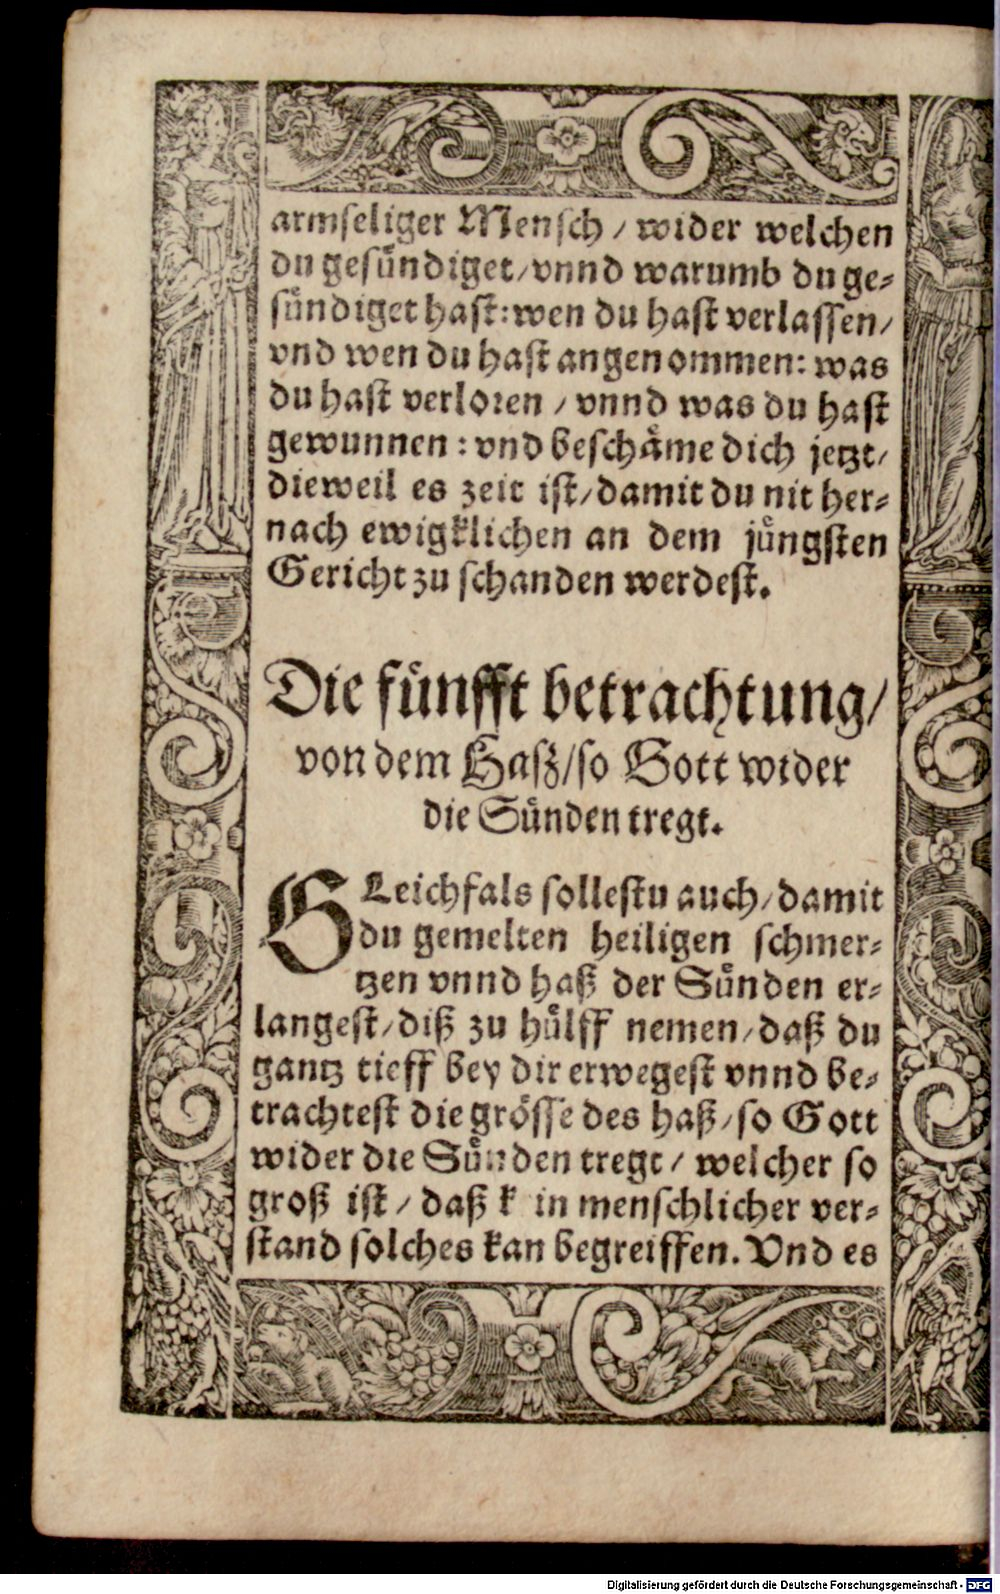 armseliger Mensch / wider welchen
du gesündiget / vnnd warumb du ge-
sündiget hast: wen du hast verlassen /
vnd wen du hast angenommen: was
du hast verloren / vnnd was du hast
gewunnen: vnd beschäme dich jetzt /
dieweil es zeit ist / damit du nit her-
nach ewigklichen an dem jüngsten
Gericht zu schanden werdest.
Die fünfft betrachtung /
von dem Hasz / so Gott wider
die Sünden tregt.
GLeichfals sollestu auch / damit
du gemelten heiligen schmer-
tzen vnnd haß der Sünden er-
langest / diß zu hülff nemen / daß du
gantz tieff bey dir erwegest vnnd be-
trachtest die grösse des haß / so Gott
wider die Sünden tregt / welcher so
groß ist / daß k in menschlicher ver-
stand solches kan begreiffen. Vnd es
Digitalisierung gefördert durch die Deutsche Forschungsgemeinschaft - DFG